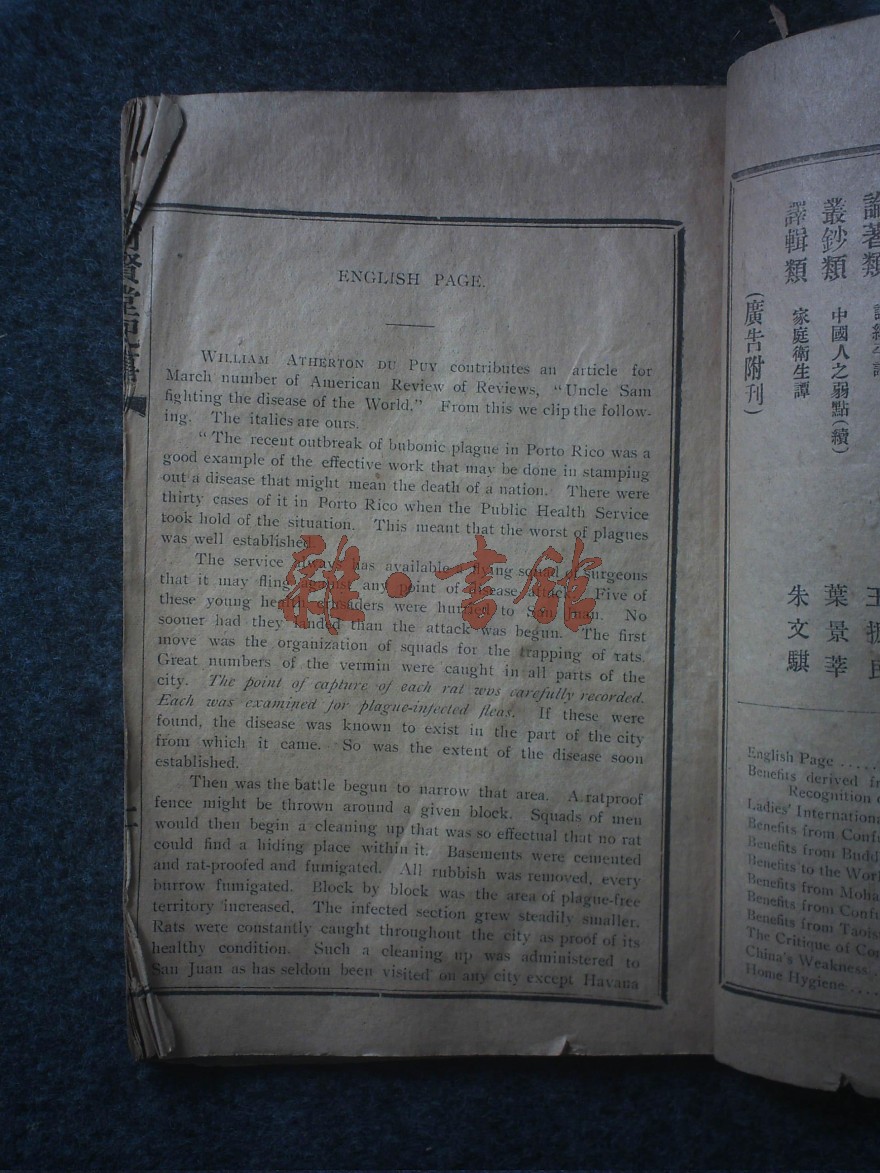 ENGLISH PAGE.
WILLIAM ATHERTON DU PUY contributes an article for
March number of American Review of Reviews, "Uncle Sam
fighting the disease of the World." From this we clip the follow-
ing. The italics are ours.
"The recent outbreak of bubonic plague in Porto Rico was a
good example of the effective work that may be done in stamping
out a disease that might mean the death of a nation. There were
thirty cases of it in Porto Rico when the Public Health Service
took hold of the situation. This meant that the worst of plagues
was well established.
The service always has available flying squad of surgeons
that it may fling against any point of disease attack. Five of
these young health crusaders were hurried to San Juan. No
sooner had they landed than the attack was begun. The first
move was the organization of squads for the trapping of rats.
Great numbers of the vermin were caught in all parts of the
city. The point of capture of each rat wvs carefully recorded.
Each was examined for plague-infected fleas. If these were
found, the disease was known to exist in the part of the city
from which it came. So was the extent of the disease soon
established.
Then was the battle begun to narrow that area. A ratproof
fence might be thrown around a given block. Squads of men
would then begin a cleaning up that was so effectual that no rat
could find a hiding place within it. Basements were cemented
and rat-proofed and fumigated. All rubbish was removed, every
burrow fumigated. Block by block was the area of plague-free
territory increased. The infected section grew steadily smaller.
Rats were constantly caught throughout the city as proof of its
healthy condition. Such a cleaning up was administered to
San Juan as has seldom been visited on any city except Havana
雜·書館
賢堂
論著類
叢鈔類 中國人之弱點(續) 葉景莘
譯輯類 家庭衛生譚 朱文騏
(廣告附刊)
English Page
Benefits derived
Recognition
Ladies' International
Benefits from
Benefits from
Benefits to the
Benefits from
Benefits from
Benefits from
The Critique of
China's Weakness
Home Hygiene